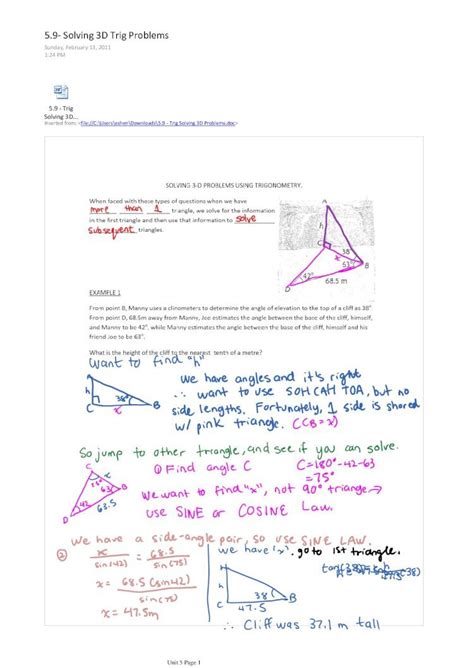 5.9- Solving 3D Trig Problems
Sunday, February 13, 2011
1:24 PM
5.9 - Trig
Solving 3D...
Inserted from: <file://C:\Users\asher\Downloads\5.9 - Trig Solving 3D Problems.doc>
SOLVING 3-D PROBLEMS USING TRIGONOMETRY.
When faced with these types of questions when we have
more than 1 triangle, we solve for the information
in the first triangle and then use that information to solve
subsequent triangles.
A
h
C
38°
x
63°
B
42°
68.5 m
D
EXAMPLE 1
From point B, Manny uses a clinometers to determine the angle of elevation to the top of a cliff as 38°
From point D, 68.5m away from Manny, Joe estimates the angle between the base of the cliff, himself,
and Manny to be 42°, while Manny estimates the angle between the base of the cliff, himself and his
friend Joe to be 63°.
What is the height of the cliff to the nearest tenths of a metre?
Want to find "h"
A
h
38°
C
x
B
We have angles and it's right
∴ want to use SOH CAH TOA, but no
side lengths. Fortunately, 1 side is shared
w/ pink triangle. (CB=x)
So jump to other triangle, and see if you can solve.
① Find angle C
C=180°-42-63
=75°
C
75°
x
63
B
42
63.5
D
We want to find "x", not 90° triangle →
use SINE or COSINE Law.
We have a side-angle pair, so use SINE LAW.
②
x/sin(42) = 68.5/sin(75)
x = 68.5 (sin42)/sin(75)
x = 47.5m
We have (x). go to 1st triangle.
H
h
38°
C
47.5
B
tan(38)=
∴ Cliff was 37.1 m tall
Unit 5 Page 1